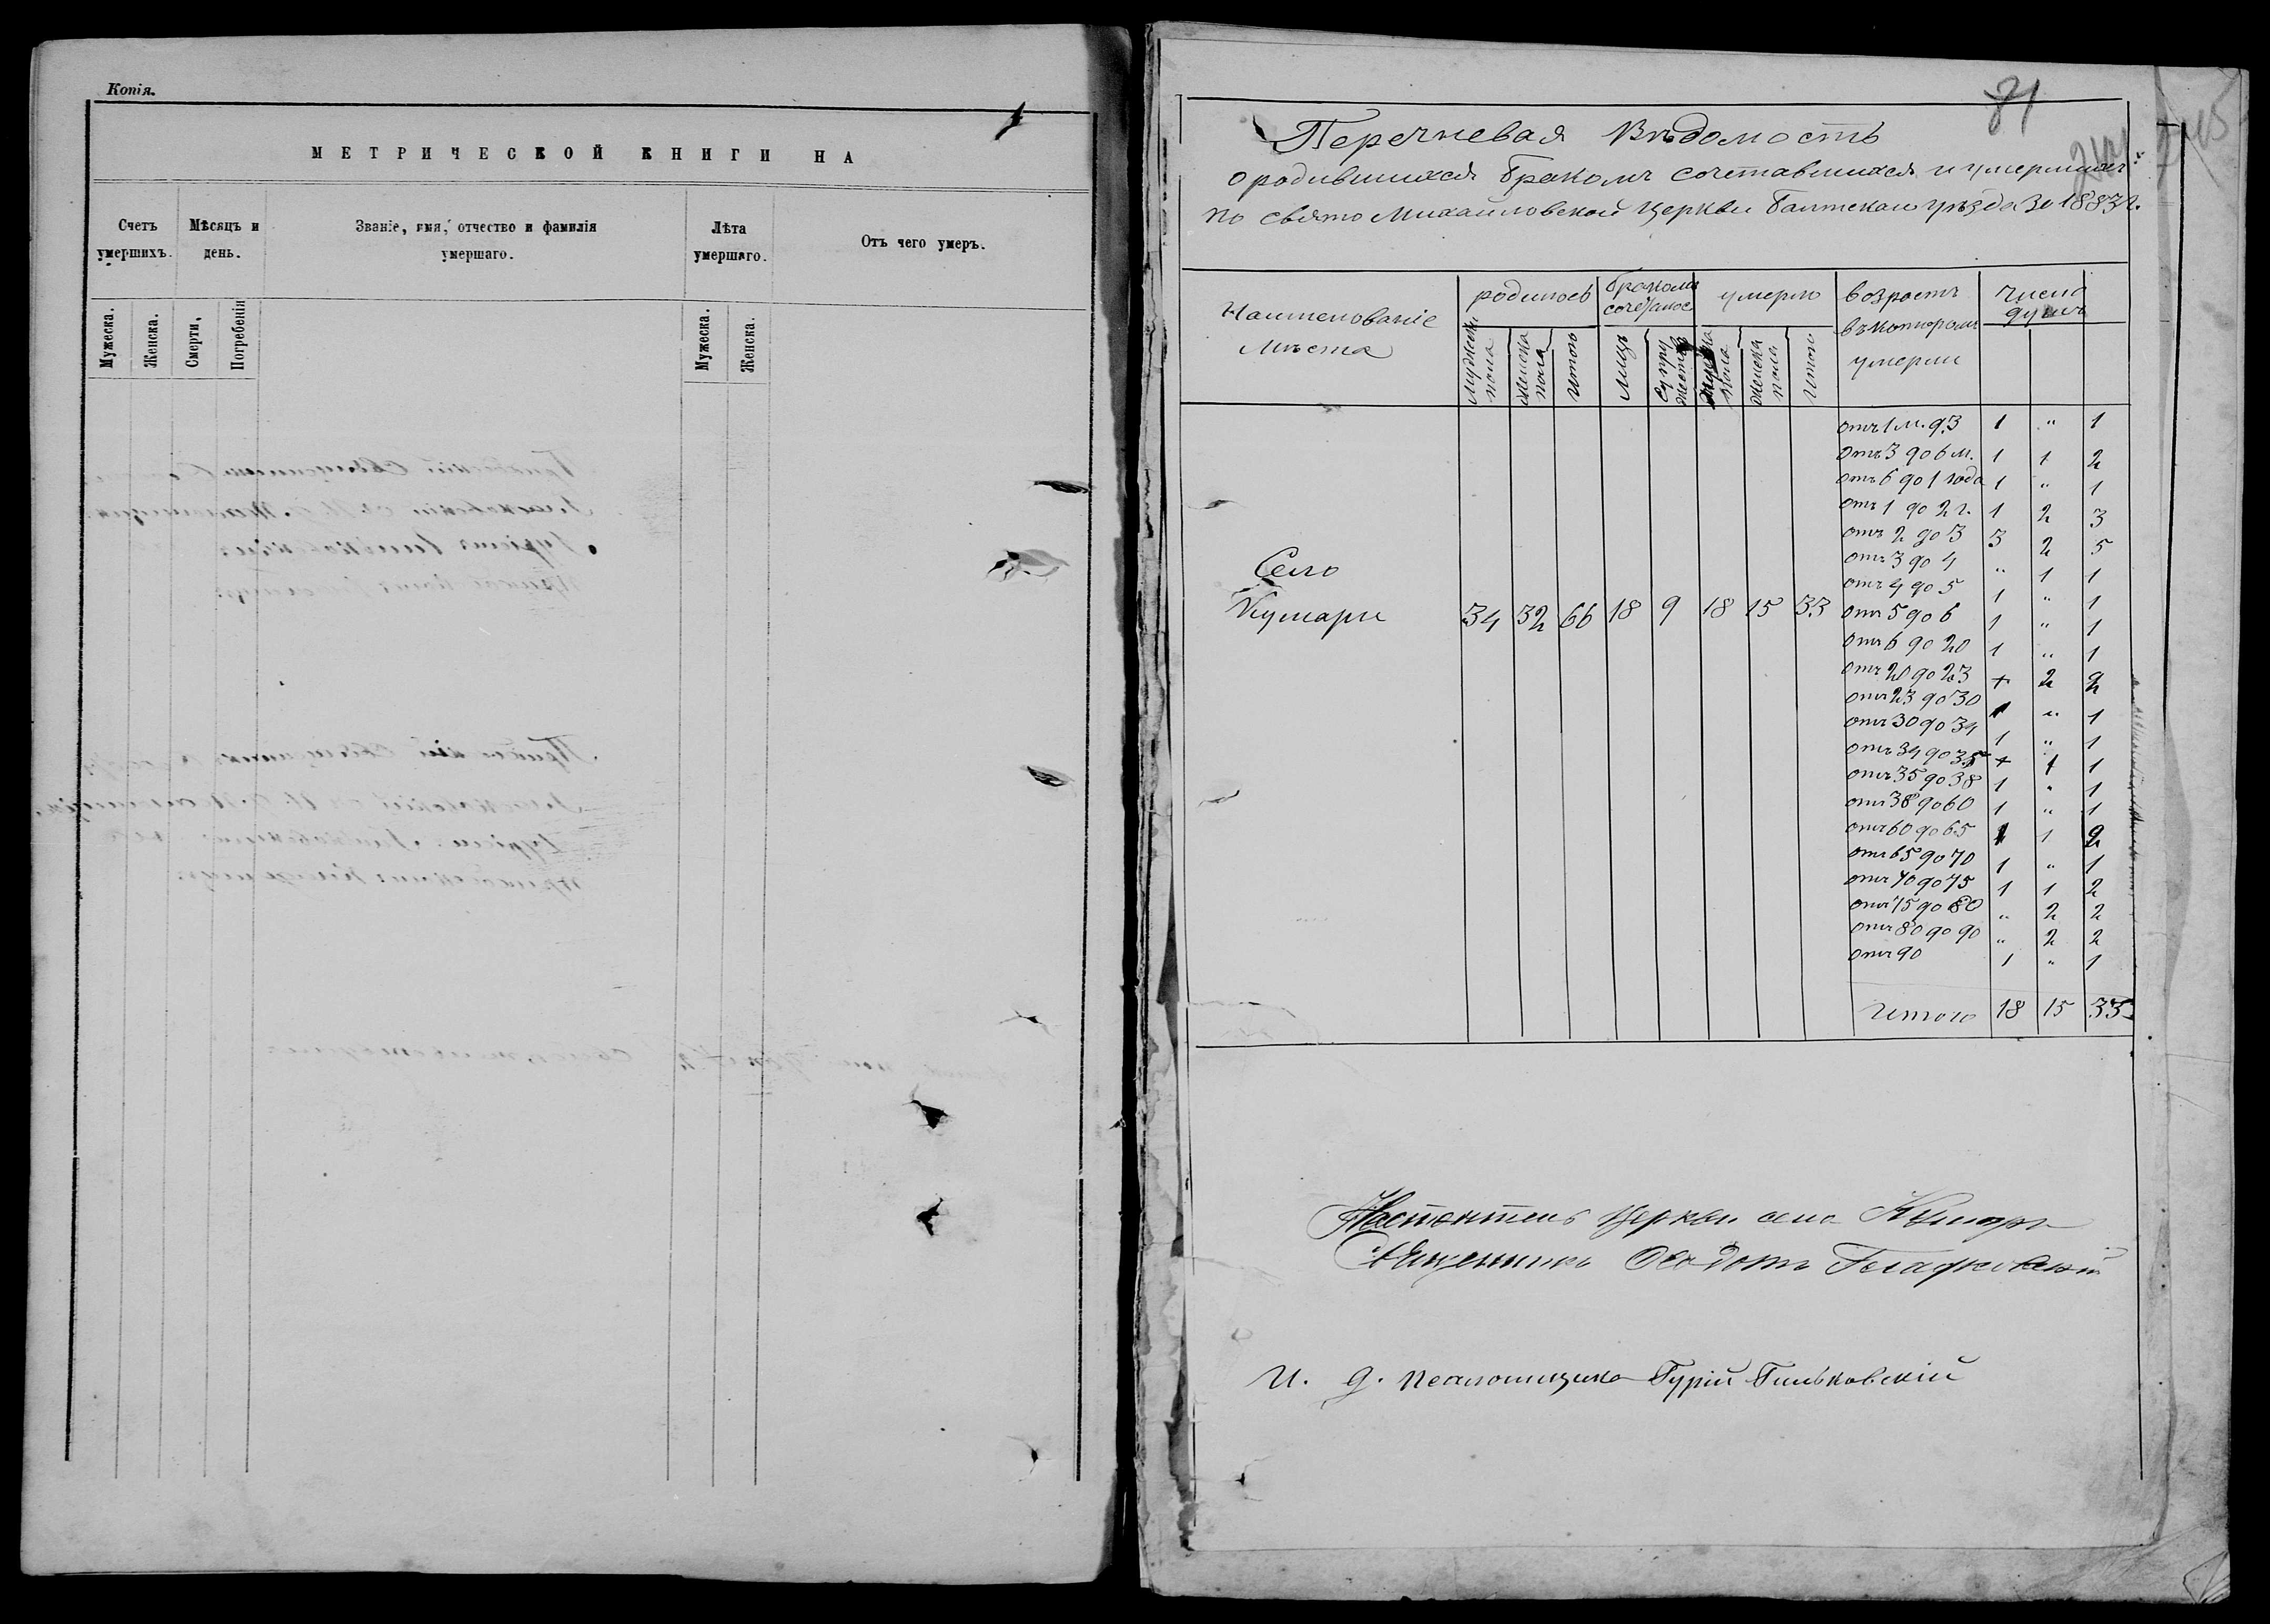 Копія.
МЕТРИЧЕСКОЙ КНИГИ НА
Счетъ умершихъ.
Мѣсяцъ и день.
Званіе, имя, отчество и фамилія умершаго.
Лѣта умершаго.
Отъ чего умеръ.
Мужеска.
Женска.
Смерти.
Погребенія
Мужеска.
Женска.
81
Перечневая Вѣдомость
о родившихся бракомъ сочетавшихся и умершихъ
по свято Михайловской церкви Балтскаго уѣзда за 1883 г.
Наименованіе мѣста
родилось
бракомъ
умерло
возрастъ въ которомъ умерли
число душъ
мужеска пола
женска пола
итого
лицъ
супружествъ
мужеска пола
женска пола
итого
Село
Кумари 34 32 66 18 9 18 15 33
отъ 1 м. д. 3 1 " 1
отъ 3 до 6 м. 1 1 2
отъ 6 до 1 года 1 " 1
отъ 1 до 2 г. 1 2 3
отъ 2 до 3 3 2 5
отъ 3 до 4 " 1 1
отъ 4 до 5 1 " 1
отъ 5 до 6 1 " 1
отъ 6 до 20 1 " 1
отъ 20 до 23 + 2 2
отъ 23 до 30 1 " 1
отъ 30 до 34 1 " 1
отъ 34 до 35 + 1 1
отъ 35 до 38 1 " 1
отъ 38 до 60 1 " 1
отъ 60 до 65 1 1 2
отъ 65 до 70 1 " 1
отъ 70 до 75 1 1 2
отъ 75 до 80 " 2 2
отъ 80 до 90 " 2 2
отъ 90 1 " 1
Итого 18 15 33
Настоятель церкви села Кумаръ
Священникъ Ѳеодотъ
И. д. псаломщика Гурій Гиньковскій